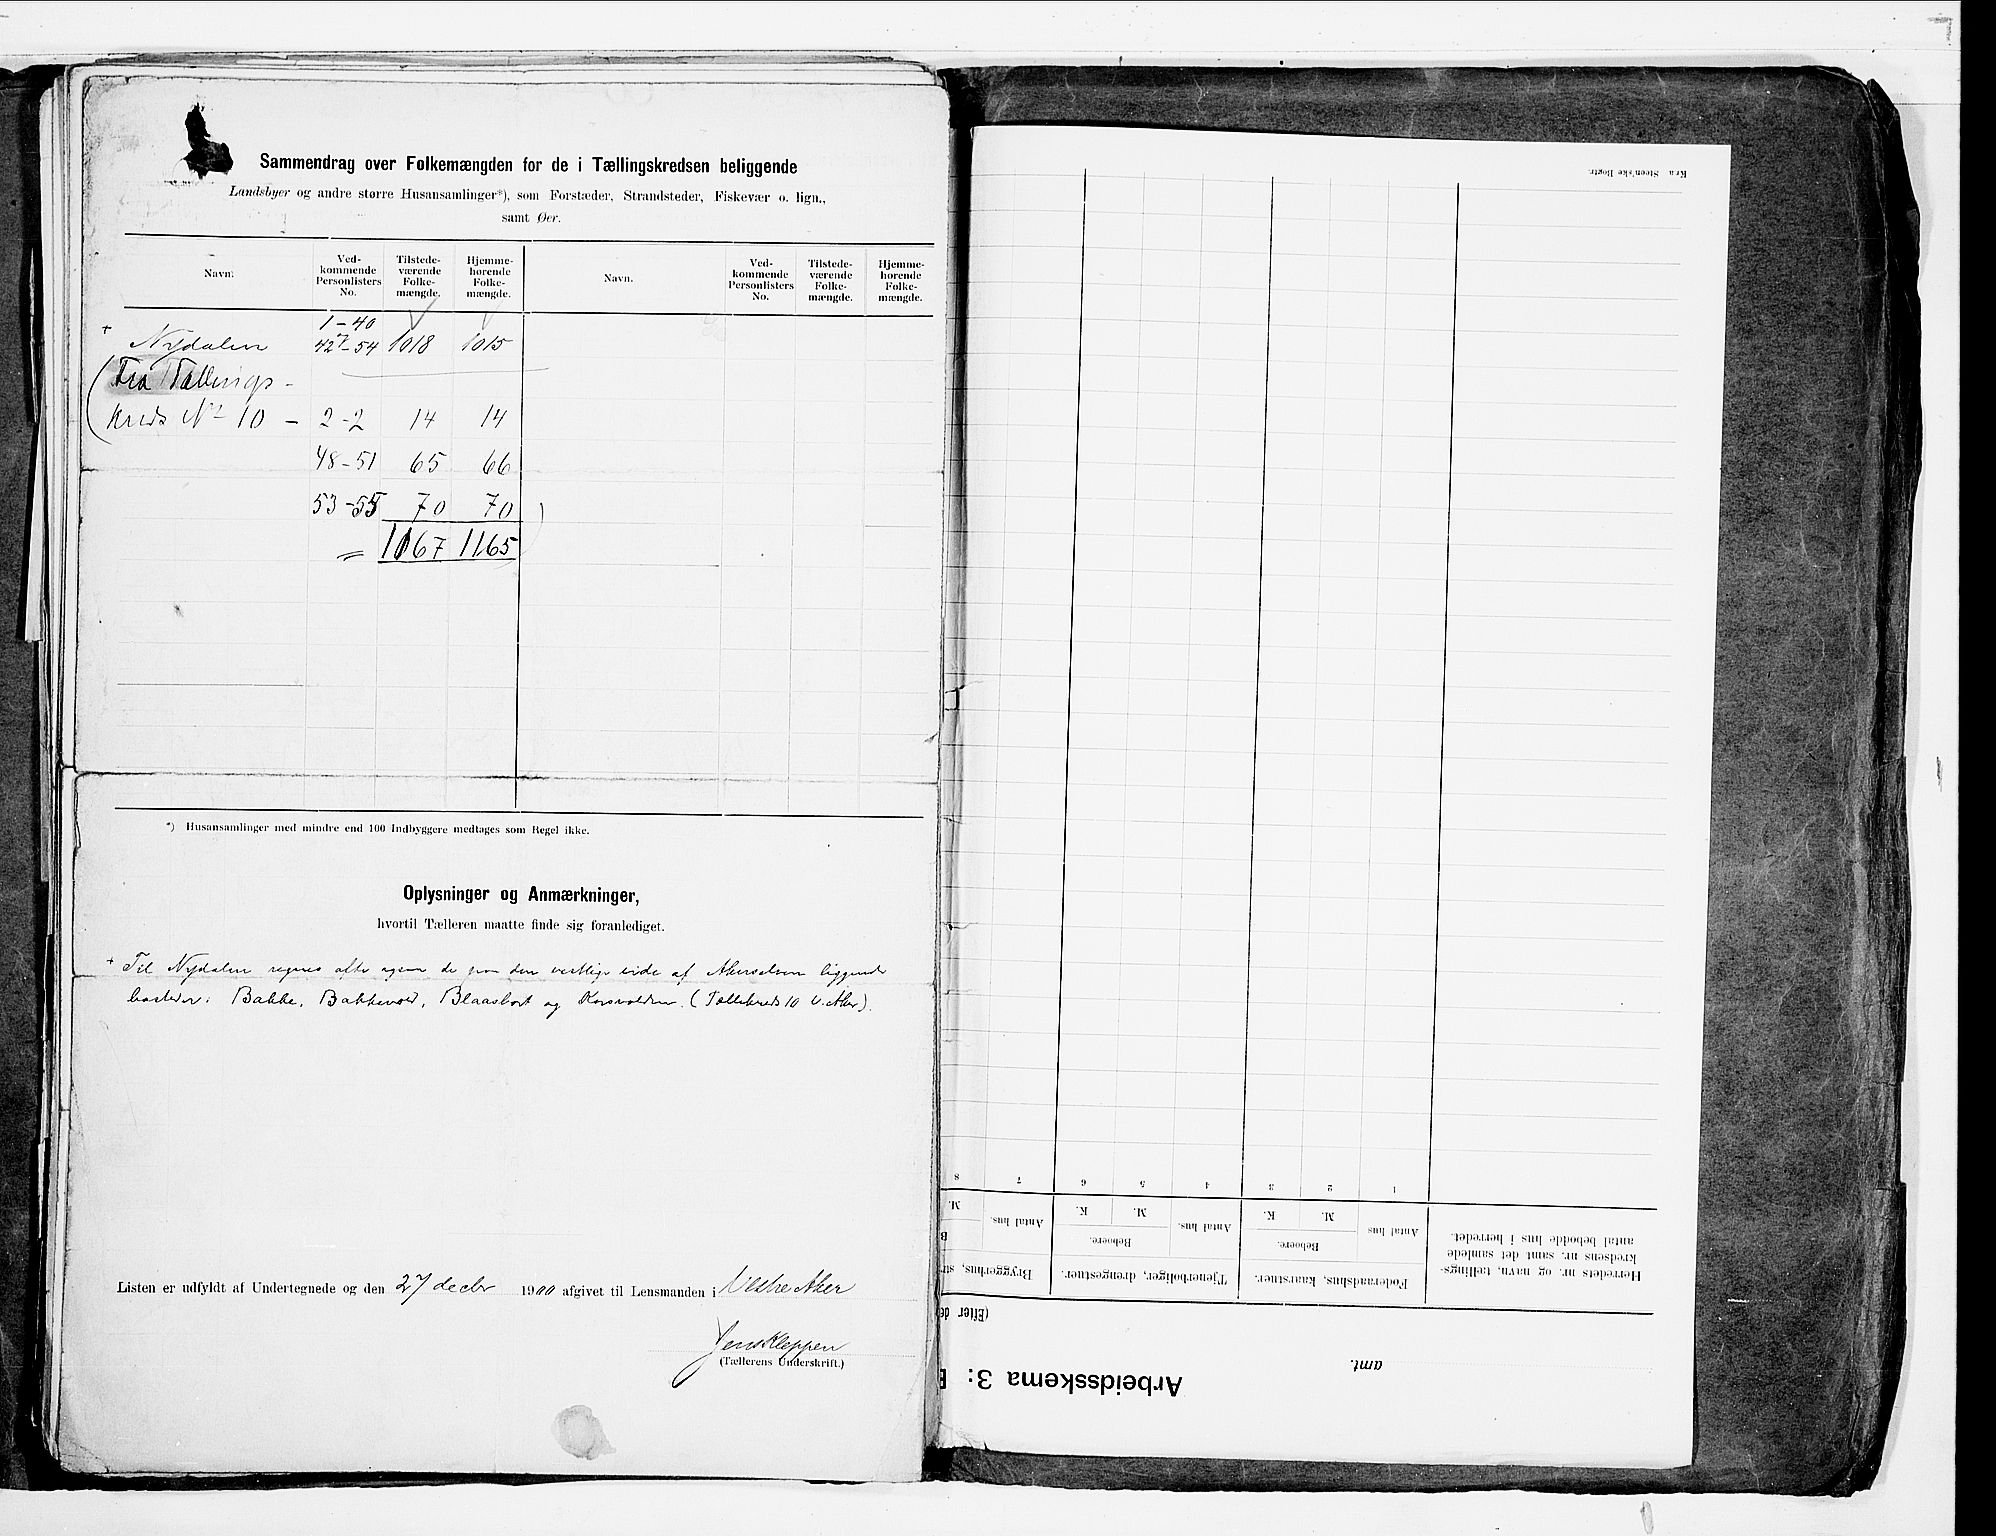 Sammendrag over Folkemængden for de i Tællingskredsen beliggende
Landsbyer og andre større Husansamlinger*), som Forstæder, Strandsteder, Fiskevær o. lign.,
samt Øer.
Navn. Ved-kommende Personlisters No. Tilstede-værende Folke-mængde. Hjemme-hørende Folke-mængde. Navn. Ved-kommende Personlisters No. Tilstede-værende Folke-mængde. Hjemme-hørende Folke-mængde.
1-40
+ Nydalen 42-54 1018 1015
(Fra Tællings-
kreds No 10 - 2-2 14 14
48-51 65 66
53-55 70 70)
= 1067 1165
*) Husansamlinger med mindre end 100 Indbyggere medtages som Regel ikke.
Oplysninger og Anmærkninger,
hvortil Tælleren maatte finde sig foranlediget.
+ Til Nydalen regnes ofte ogsaa de paa den vestlige side af Akerselven liggende
bosteder: Bakke, Bakkevold, Blaasbort og Korsvolden. (Tællekreds 10 V. Aker).
Listen er udfyldt af Undertegnede og den 27 decbr 1900 afgivet til Lensmanden i Vestre Aker
Jens Kleppen
(Tællerens Underskrift.)
Arbeidsskema 3:
amt.
(Efter de
Herredets nr. og navn, tællings-
kredsens nr. samt det samlede
antal bebodde hus i herredet.
Føderaadshus, kaarstuer.
Antal hus
Beboere.
M. K.
Tjenerboliger, drengestuer.
Antal hus.
Beboere.
M. K.
Bryggerhus,
Antal hus.
M.
1 2 3 4 5 6 7 8
Kra Steen'ske Bogtr.